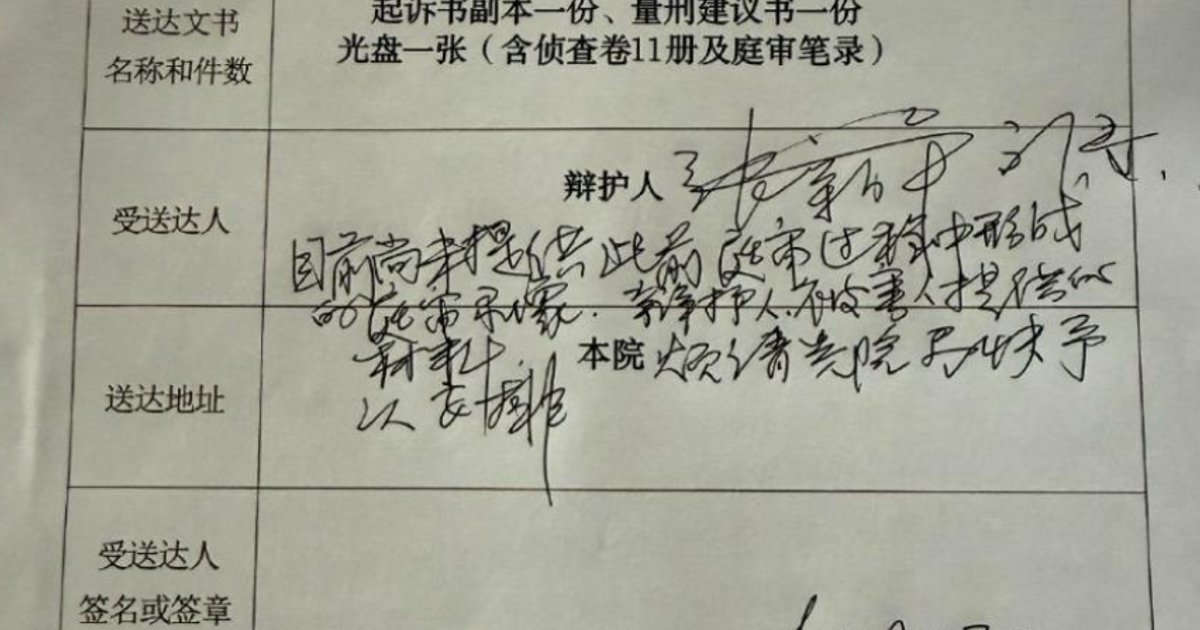 送达文书
名称和件数
起诉书副本一份、量刑建议书一份
光盘一张（含侦查卷11册及庭审笔录）
受送达人
辩护人
目前尚未提供此前庭审过程中形成
的庭审录像、辩护人、被害人提供的
材料.
送达地址
本院 烦请贵院尽快予
以安排
受送达人
签名或签章